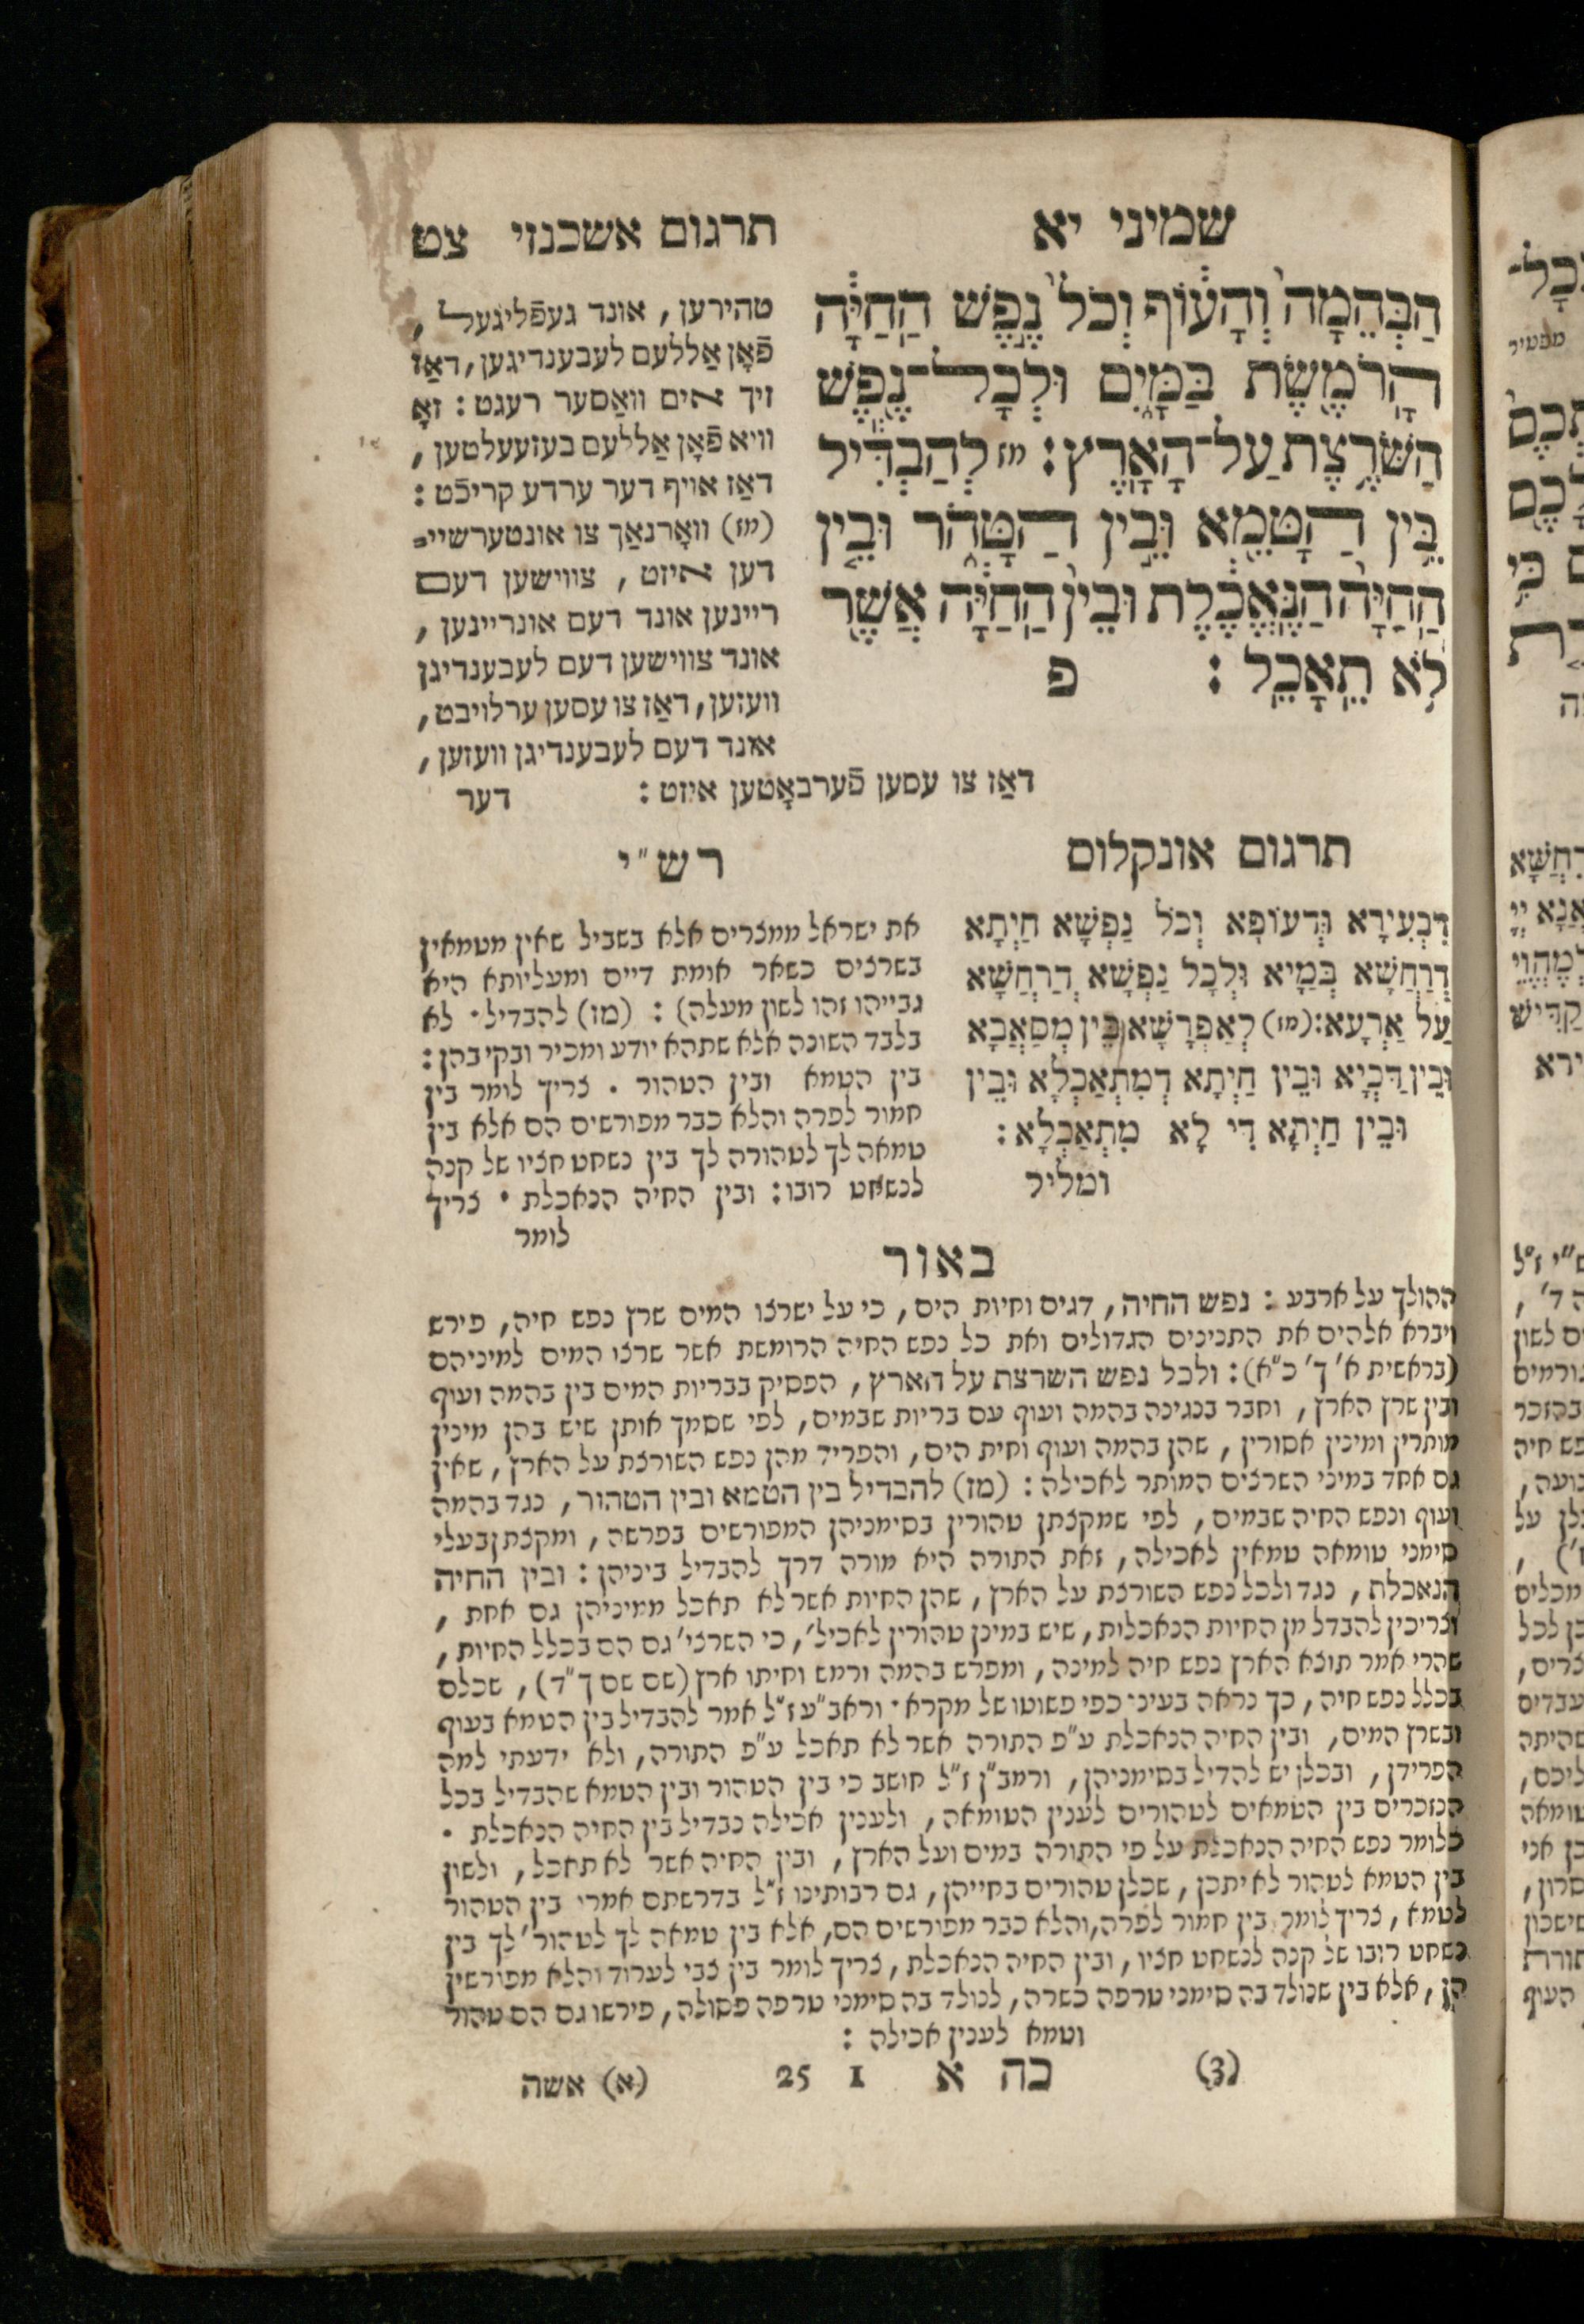 שמיני יא
תרגום אשכנזי צט
הַבְּהֵמָה וְהָעוֹף וְכֹל נֶפֶשׁ הַחַיָּה
הָרֹמֶשֶׂת בַּמָּיִם וּלְכָל־נֶפֶשׁ
הַשֹּׁרֶצֶת עַל־הָאָרֶץ: מז לְהַבְדִּיל
בֵּין הַטָּמֵא וּבֵין הַטָּהֹר וּבֵין
הַחַיָּה הַנֶּאֱכֶלֶת וּבֵין הַחַיָּה אֲשֶׁר
לֹא תֵאָכֵל: פ
טהירען, אונד געפֿליגעל,
פֿאָן אַללעם לעבענדיגען, דאַז
זיך אים וואַסער רעגט: זאָ
וויא פֿאָן אַללעם בעזעעלטען,
דאַז אויף דער ערדע קריכֿט:
(מז) וואָרנאַך צו אונטערשיי=
דען איזט, צווישען דעם
ריינען אונד דעם אונריינען,
אונד צווישען דעם לעבענדיגן
וועזען, דאַז צו עסען ערלויבט,
אונד דעם לעבענדיגן וועזען,
דאַז צו עסען פֿערבאָטען איזט: דער
תרגום אונקלוס
דִּבְעִירָא וּדְעוֹפָא וְכֹל נַפְשָׁא חַיְתָא
דְרַחֲשָׁא בְּמַיָא וּלְכָל נַפְשָׁא דְרַחֲשָׁא
עַל אַרְעָא: (מז) לְאַפְרָשָׁא בֵּין מְסַאֲבָא
וּבֵין דַּכְיָא וּבֵין חַיְתָא דְמִתְאַכְלָא וּבֵין
וּבֵין חַיְתָא דִּי לָא מִתְאַכְלָא:
ומליל
רש"י
את ישראל ממצרים אלא בשביל שאין מטמאין
בשרצים כשאר אומת דיים ומעליותא היא
גבייהו זהו לשון מעלה): (מז) להבדיל· לא
בלבד השונה אלא שתהא יודע ומכיר ובקי בהן:
בין הטמא ובין הטהור · צריך לומר בין
חמור לפרה והלא כבר מפורשים הם אלא בין
טמאה לך לטהורה לך בין נשחט חציו של קנה
לנשחט רובו: ובין החיה הנאכלת · צריך
לומר
באור
ההולך על ארבע: נפש החיה, דגים וחיות הים, כי על ישרצו המים שרץ נפש חיה, פירש
ויברא אלהים את התנינים הגדולים ואת כל נפש החיה הרומשת אשר שרצו המים למיניהם
(בראשית א' ך' כ"א): ולכל נפש השרצת על הארץ, הפסיק בבריות המים בין בהמה ועוף
ובין שרץ הארץ, וחבר בנגינה בהמה ועוף עם בריות שבמים, לפי שסמך אותן שיש בהן מינין
מותרין ומינין אסורין, שהן בהמה ועוף וחית הים, והפריד מהן נפש השורצת על הארץ, שאין
גם אחד במיני השרצים המותר לאכילה: (מז) להבדיל בין הטמא ובין הטהור, כנגד בהמה
ועוף ונפש החיה שבמים, לפי שמקצתן טהורין בסימניהן המפורשים בפרשה, ומקצתן בעלי
סימני טומאה טמאין לאכילה, זאת התורה היא מורה דרך להבדיל ביניהן: ובין החיה
הנאכלת, כנגד ולכל נפש השורצת על הארץ, שהן החיות אשר לא תאכל ממיניהן גם אחת,
וצריכין להבדל מן החיות הנאכלות, שיש במינן טהורין לאכיל', כי השרצי' גם הם בכלל החיות,
שהרי אמר תוצא הארץ נפש חיה למינה, ומפרש בהמה ורמש וחיתו ארץ (שם שם ך"ד), שכלם
בכלל נפש חיה, כך נראה בעיני כפי פשוטו של מקרא· וראב"ע ז"ל אמר להבדיל בין הטמא בעוף
ובשרץ המים, ובין החיה הנאכלת ע"פ התורה אשר לא תאכל ע"פ התורה, ולא ידעתי למה
הפרידן, ובכלן יש להדיל בסימניהן, ורמב"ן ז"ל חושב כי בין הטהור ובין הטמא שהבדיל בכל
הנזכרים בין הטמאים לטהורים לענין הטומאה, ולענין אכילה נבדיל בין החיה הנאכלת ·
כלומר נפש החיה הנאכלת על פי התורה במים ועל הארץ, ובין החיה אשר לא תאכל, ולשון
בין הטמא לטהור לא יתכן, שכלן טהורים בחייהן, גם רבותינו ז"ל בדרשתם אמרי בין הטהור
לטמא, צריך לומר בין חמור לפרה, והלא כבר מפורשים הם, אלא בין טמאה לך לטהור' לך בין
נשחט רובו של קנה לנשחט חציו, ובין החיה הנאכלת, צריך לומר בין צבי לערוד והלא מפורשין
הן, אלא בין שנולד בה סימני טרפה כשרה, לנולד בה סימני טרפה פסולה, פירשו גם הם טהור
וטמא לענין אכילה:
(ג) כה א 1 25 (א) אשה